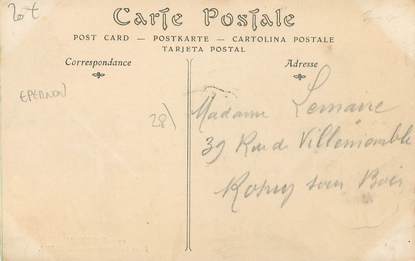 20€
Carte Postale
POST CARD — POSTKARTE — CARTOLINA POSTALE
TARJETA POSTAL
Correspondance
Adresse
EPERNON
28
Madame Lemaire
39 Rue de Villemomble
Rosny sous Bois